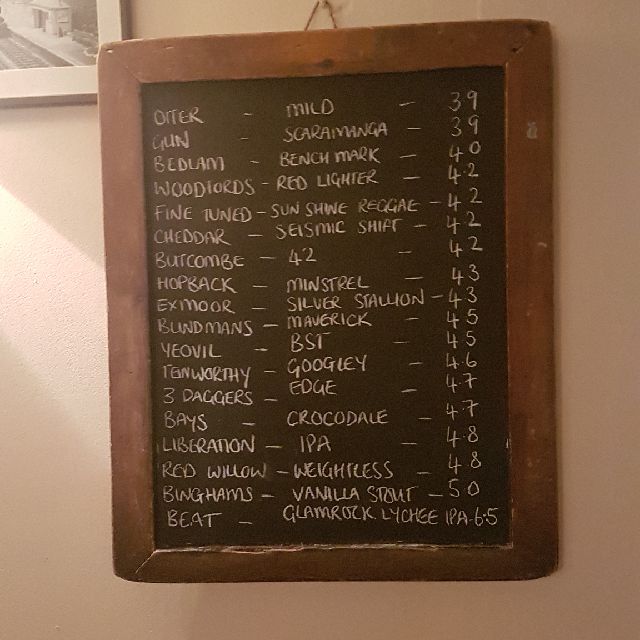 OTTER - MILD - 3.9
GUN - SCARAMANGA - 3.9
BEDLAM - BENCHMARK - 4.0
WOODFORDS - RED LIGHTER - 4.2
FINE TUNED - SUNSHINE REGGAE - 4.2
CHEDDAR - SEISMIC SHIFT - 4.2
BUTCOMBE - 42 - 4.2
HOPBACK - MINSTREL - 4.3
EXMOOR - SILVER STALLION - 4.3
BLINDMANS - MAVERICK - 4.5
YEOVIL - BST - 4.5
TEIGNWORTHY - GOOGLEY - 4.6
3 DAGGERS - EDGE - 4.7
BAYS - CROCODALE - 4.7
LIBERATION - IPA - 4.8
RED WILLOW - WEIGHTLESS - 4.8
BINGHAMS - VANILLA STOUT - 5.0
BEAT - GLAMROCK LYCHEE IPA - 6.5